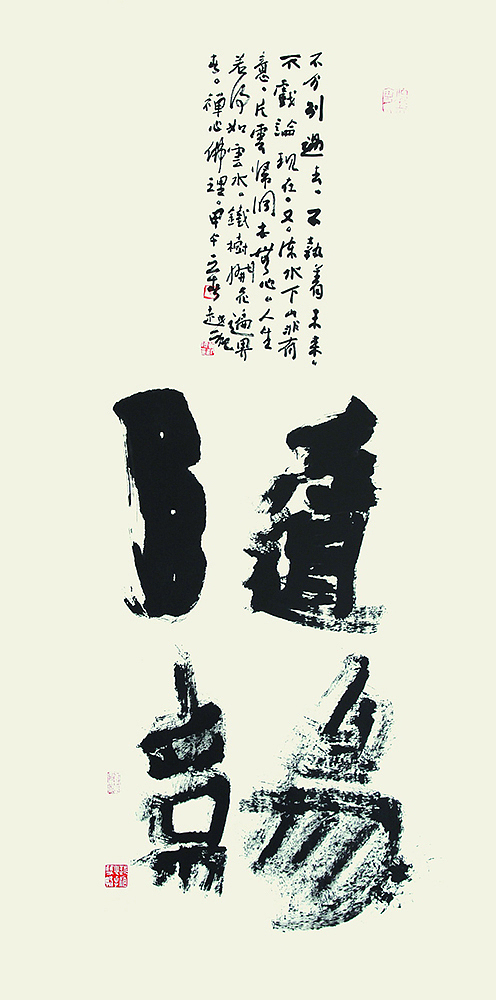 不分別過去，不執着未來，
不戲論現在。又。流水下山非有
意。片雲歸洞本無心。人生
若得如雲水。鐵樹開花遍界
春。禪心佛理。甲午立春
隨